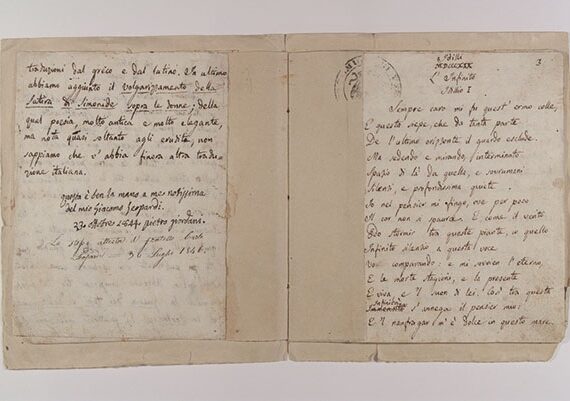 traduzioni dal greco e dal latino. In ultimo
abbiamo aggiunto il volgarizzamento della
Satira di Simonide sopra le donne; della
qual poesia, molto antica e molto elegante,
ma nota quasi soltanto agli eruditi, non
sappiamo che v'abbia finora altra tradu-
zione italiana.
questa è ben la mano a me notissima
del mio Giacomo Leopardi.
23. ottobre 1844. pietro giordani.
Lo stesso attesta il fratello Carlo
Leopardi 1846.
3
Idilli
MDCCCXIX
L'Infinito
Idillio I
Sempre caro mi fu quest'ermo colle,
E questa siepe, che da tanta parte
De l'ultimo orizzonte il guardo esclude.
Ma sedendo e mirando, interminato
Spazio di là da quella, e sovrumani
Silenzi, e profondissima quiete
Io nel pensier mi fingo, ove per poco
Il cor non si spaura. E come il vento
Odo stormir tra queste piante, io quello
Infinito silenzio a questa voce
Vo comparando: e mi sovvien l'eterno,
E le morte stagioni, e la presente
E viva, e 'l suon di lei. Così tra questa
Infinità
Immensità s'annega il pensier mio:
E 'l naufragar m'è dolce in questo mare.